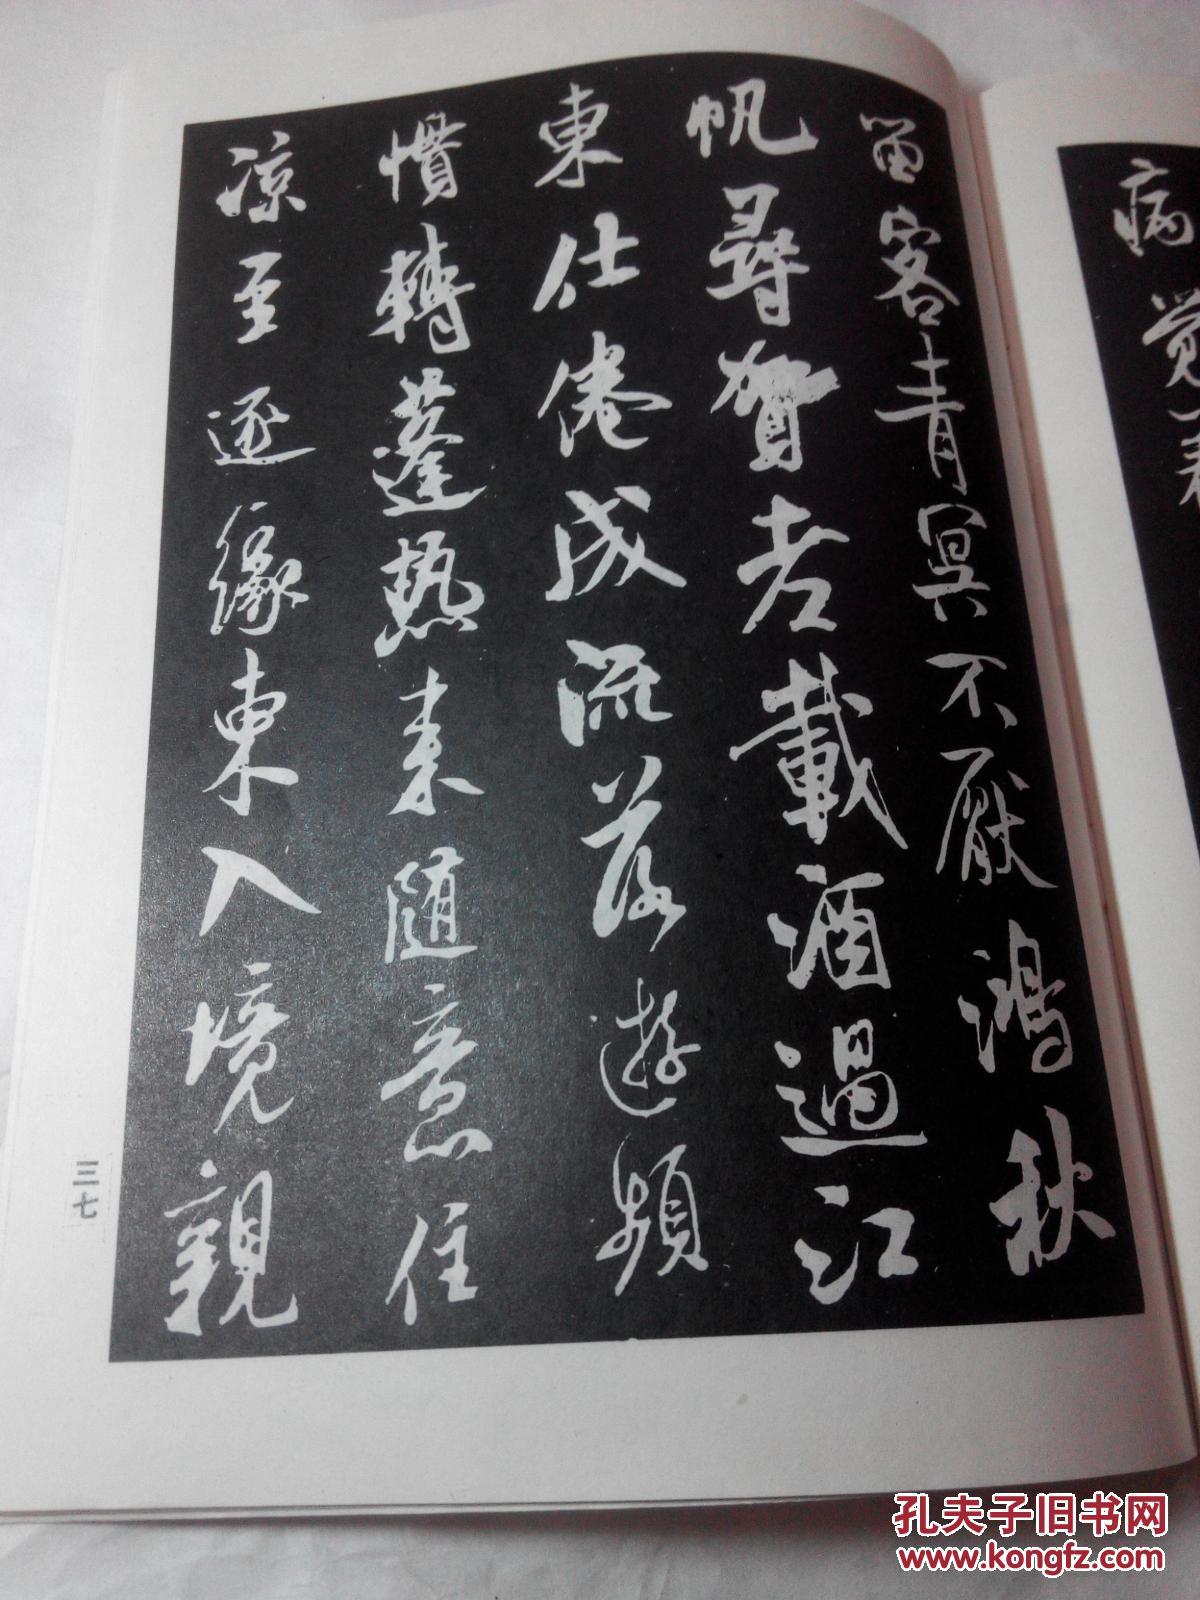 留客青冥不厭鴻秋
帆尋賀老載酒過江
東仕倦成流落遊頻
慣轉蓬热来随意住
凉至逐緣東入境親
三七
病覺一素
孔夫子旧书网
www.kongfz.com